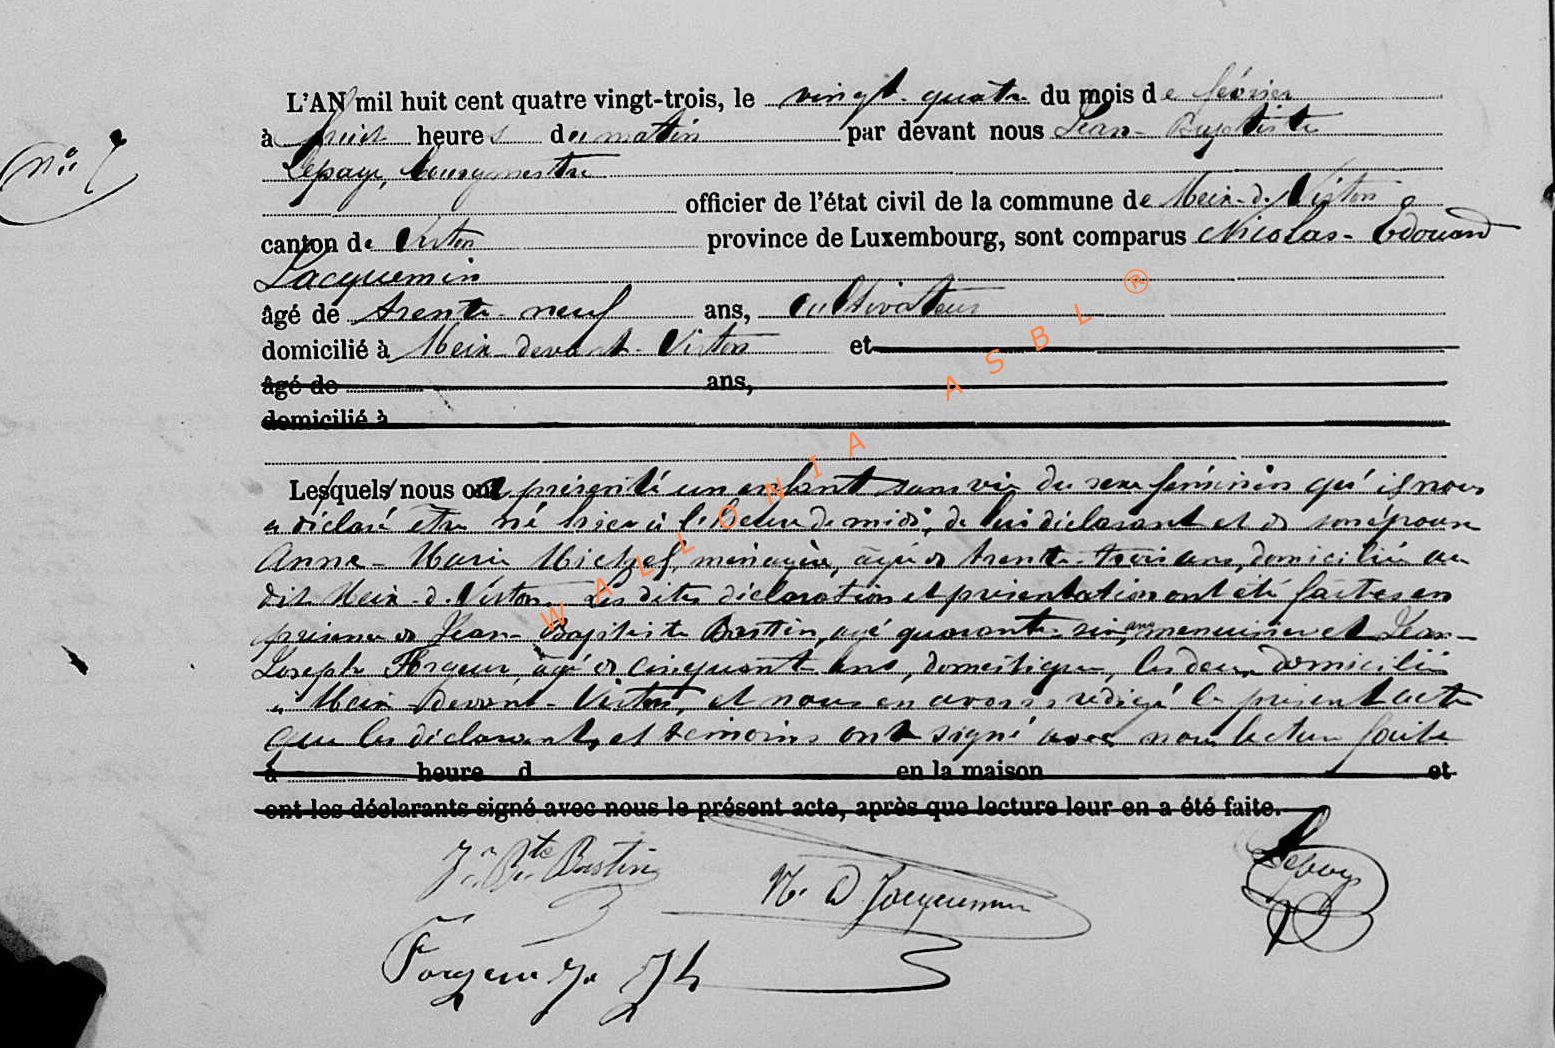 L'AN mil huit cent quatre vingt-trois, le vingt-quatre du mois de février
N° 7
à huit heures du matin par devant nous Jean-Baptiste
Lepage, bourgmestre
officier de l'état civil de la commune de Meix-d-Virton
canton de Virton province de Luxembourg, sont comparus Nicolas-Edouard
Jacquemin
âgé de trente-neuf ans, cultivateur
domicilié à Meix-devant-Virton et
âgé de ans,
domicilié à
Lesquels nous ont présenté un enfant sans vie du sexe féminin qu'il nous
a déclaré être né hier à l'heure de midi, de lui déclarant et de son épouse
Anne-Marie Michel, ménagère, âgée de trente-trois ans, domiciliée au
dit Meix-d-Virton. Les dites déclaration et présentation ont été faites en
présence de Jean-Baptiste Bastin, âgé quarante-six ans, menuisier et Jean-
Joseph Forgeur, âgé de cinquante ans, domestique, les deux domiciliés
à Meix-devant-Virton, et nous en avons rédigé le présent acte
que les déclarant, et témoins ont signé avec nous lecture faite
à heure d en la maison et
ont les déclarants signé avec nous le présent acte, après que lecture leur en a été faite.
Jn Bte Bastin
N. D. Jacquemin
Lepage
Forgeur Jn Jh
WALLONIA ASBL ®